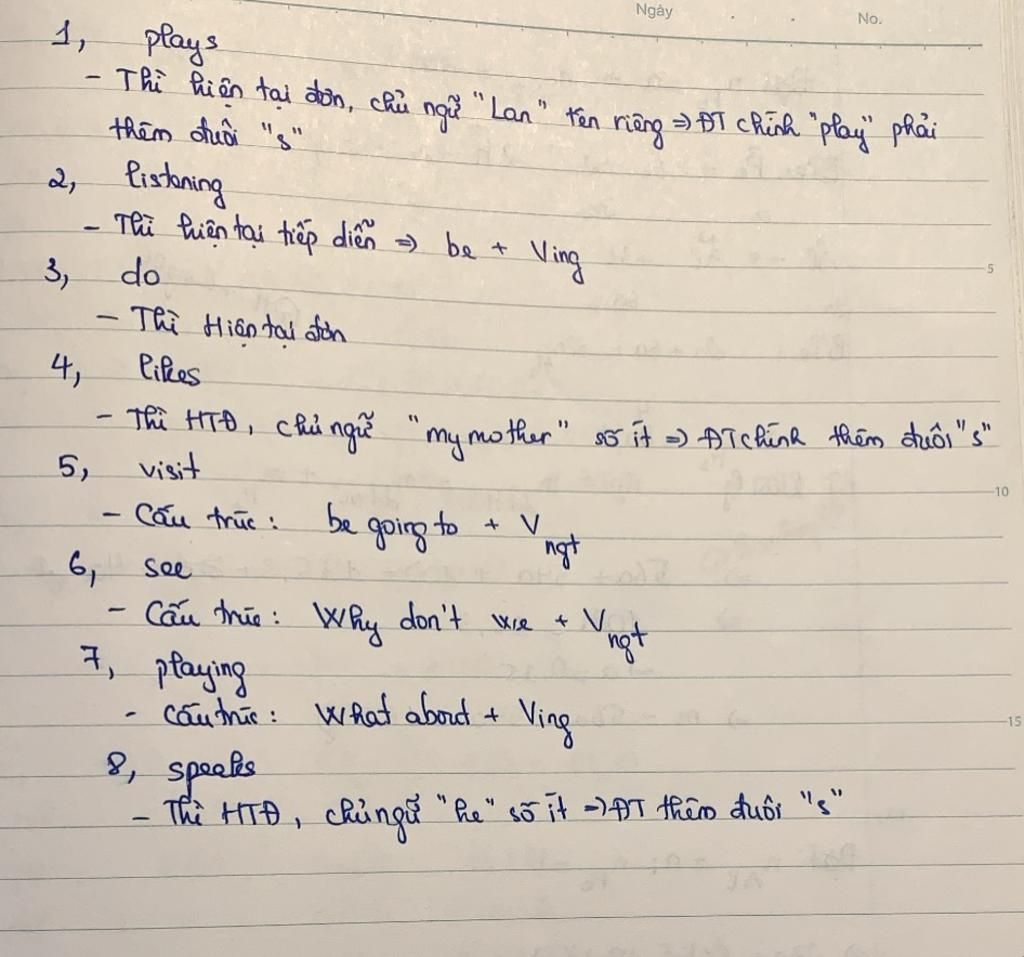 Ngày . . No.
1, plays
- Thì hiện tại đơn, chủ ngữ "Lan" tên riêng => ĐT chính "play" phải
thêm đuôi "s"
2, listening
- Thì hiện tại tiếp diễn => be + Ving
5
3, do
- Thì Hiện tại đơn
4, likes
- Thì HTĐ, chủ ngữ "my mother" số ít => ĐT chính thêm đuôi "s"
5, visit
10
- Cấu trúc: be going to + Vngt
6, see
- Cấu trúc: Why don't we + Vngt
7, playing
- cấu trúc: What about + Ving
15
8, speaks
- Thì HTĐ, chủ ngữ "he" số ít => ĐT thêm đuôi "s"